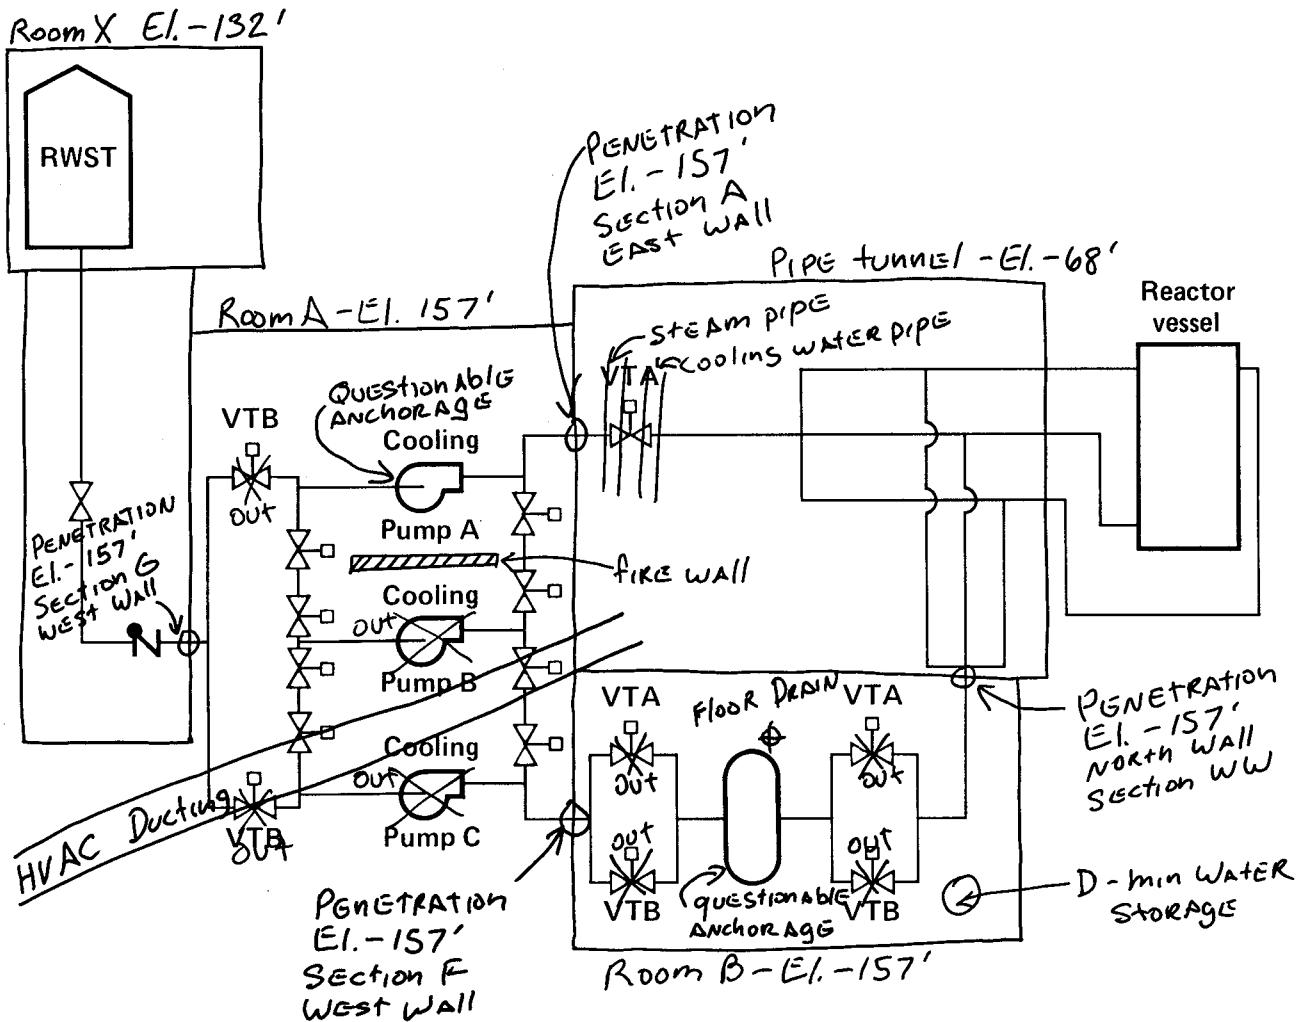 Room X El.-132'
RWST
PENETRATION
El.-157'
Section A
EAST WALL
PIPE tunnel -El.-68'
Room A-El. 157'
Reactor
vessel
STEAM pipe
Cooling WATER pipE
VTA
QUESTIONABLE
ANCHORAGE
VTB
OUT
Cooling
Pump A
fiRE WAll
PENETRATION
El.-157'
Section G
WEST WAll
Cooling
OUT
Pump B
Cooling
OUT
Pump C
HVAC Ducting
VTB
OUT
VTA
OUT
FlOOR DRAIN
VTA
OUT
OUT
VTB
OUT
VTB
questionABlE
ANCHORAGE
PENETRATION
El.-157'
NORTH WAll
SEction WW
D-min WATER
STORAGE
PENETRATION
El.-157'
Section F
WEST WAll
Room B-El.-157'